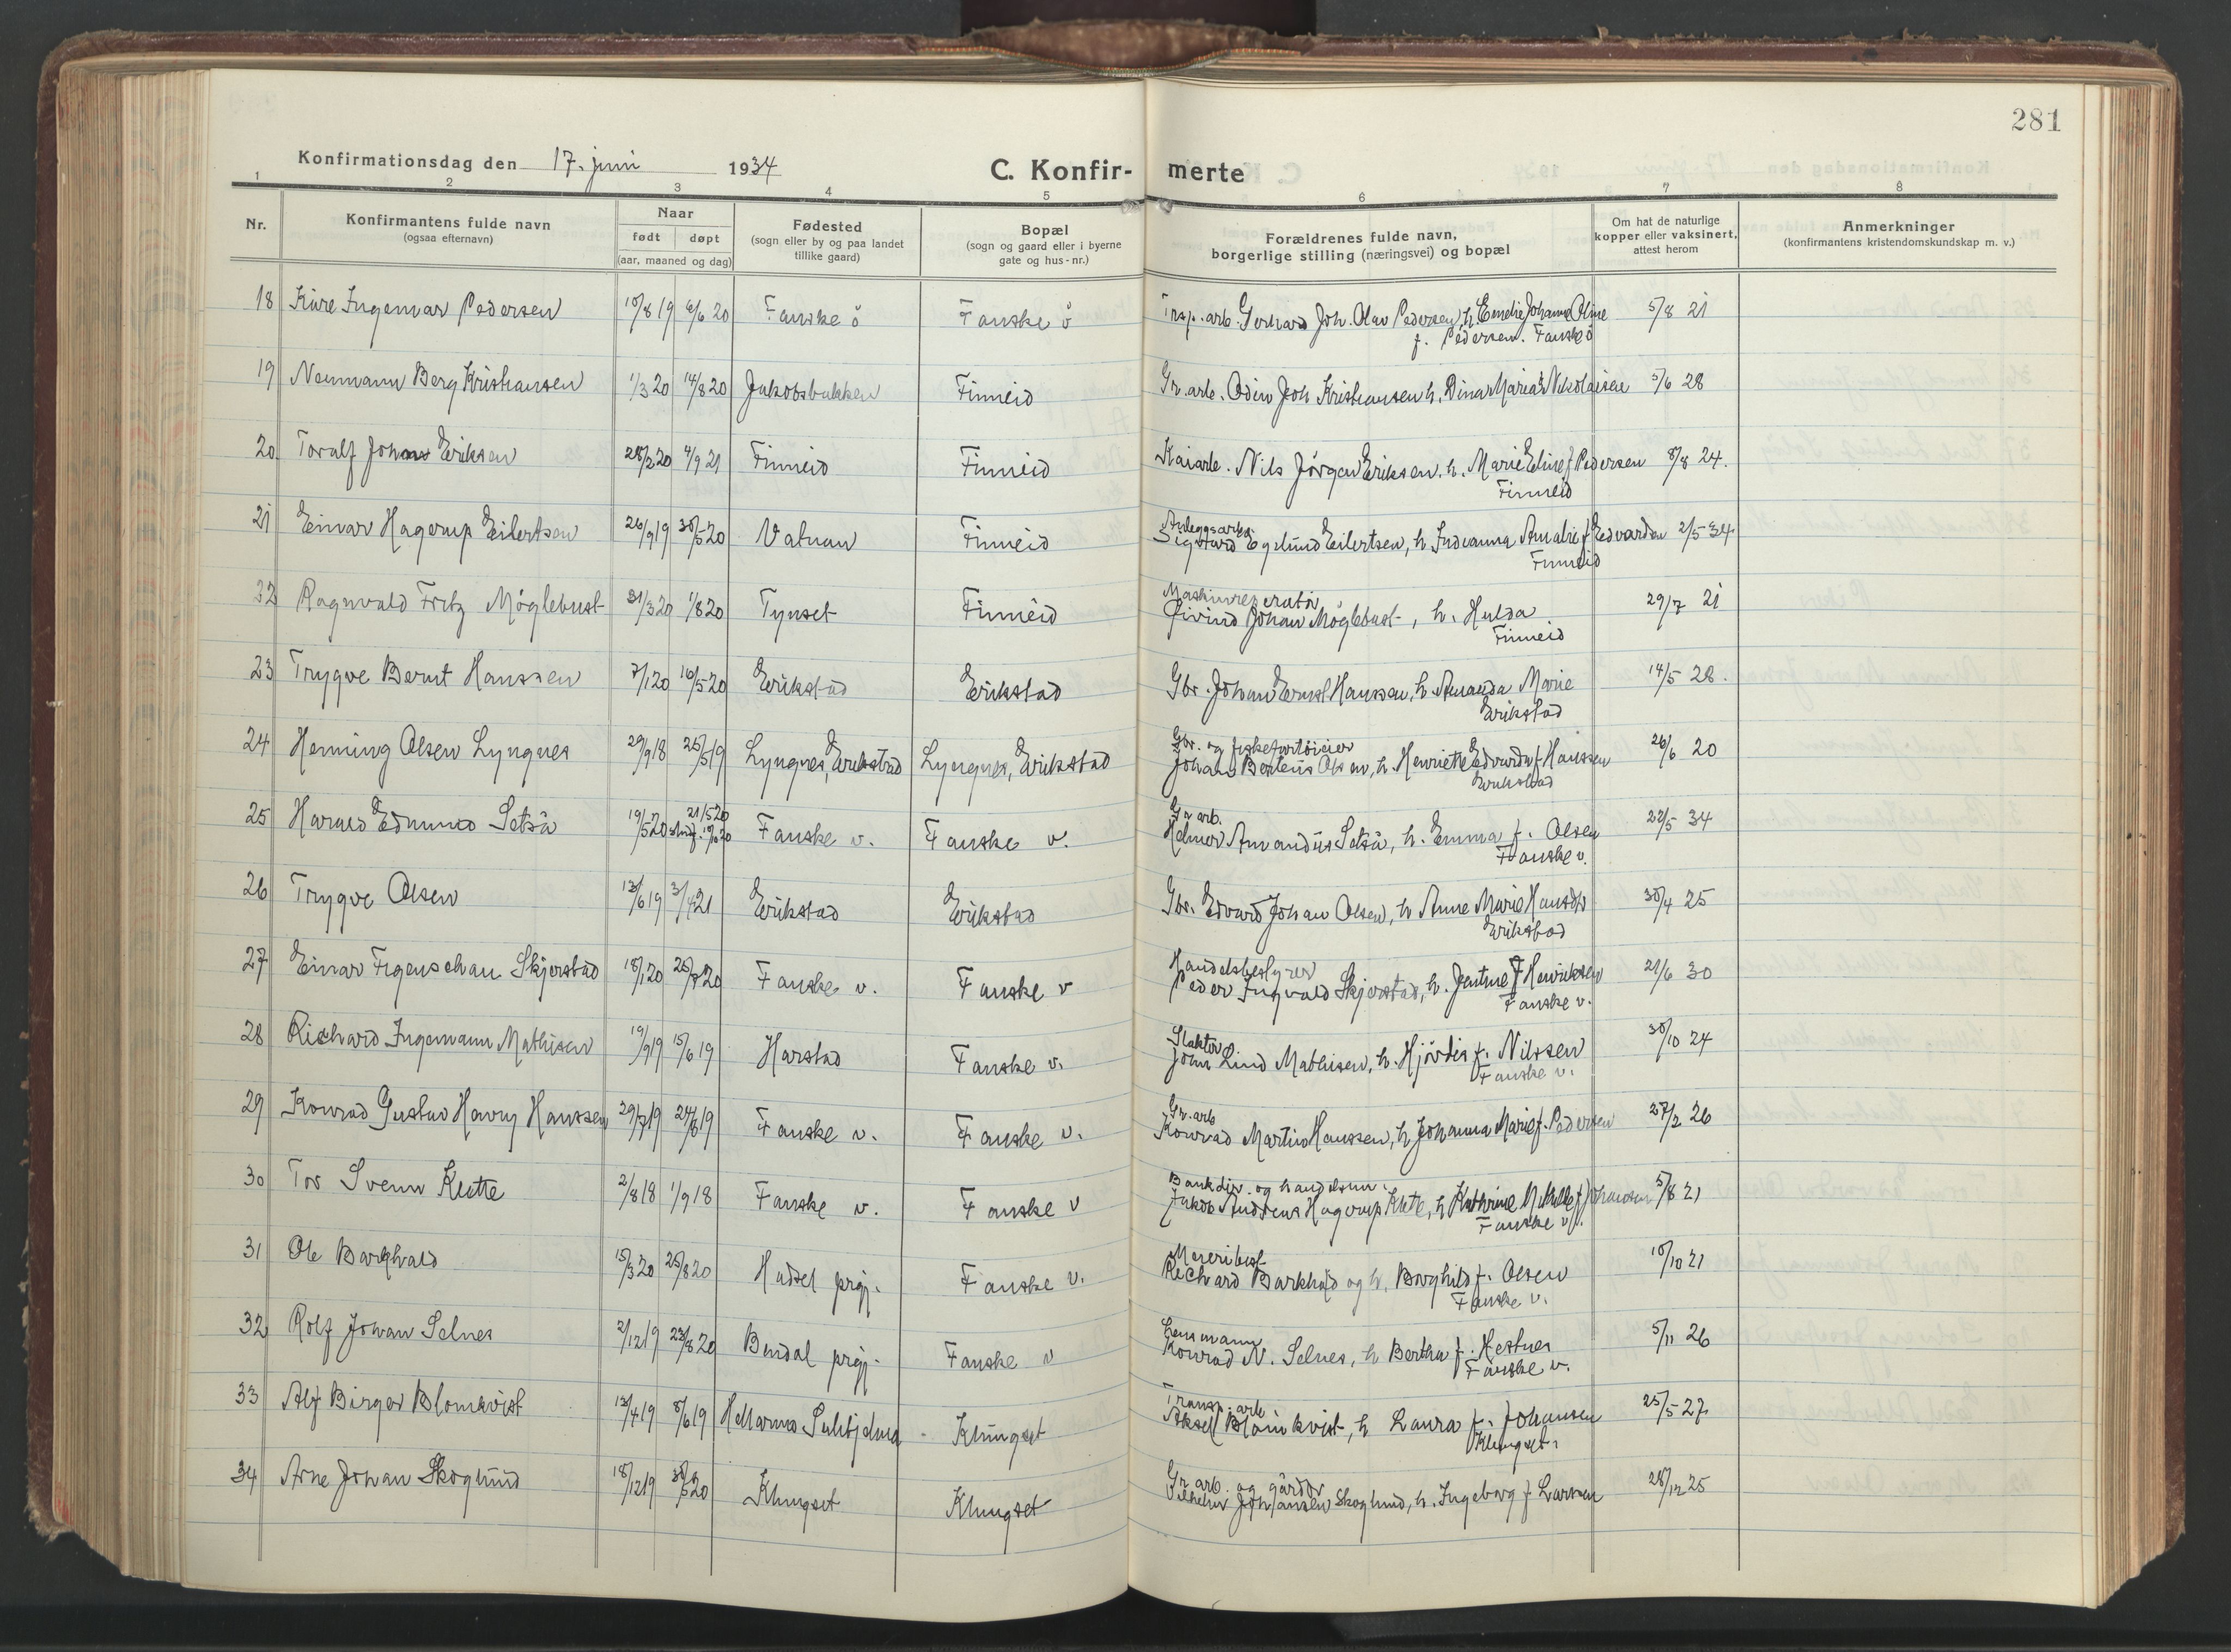 281
Konfirmationsdag den 17. juni 1934
C. Konfir- merte
1 2 3 4 5 6 7 8
Nr.
Konfirmantens fulde navn
(ogsaa efternavn)
Naar
født døpt
(aar, maaned og dag)
Fødested
(sogn eller by og paa landet
tillike gaard)
Bopæl
(sogn og gaard eller i byerne
gate og hus-nr.)
Forældrenes fulde navn,
borgerlige stilling (næringsvei) og bopæl
Om hat de naturlige
kopper eller vaksinert,
attest herom
Anmerkninger
(konfirmantens kristendomskundskap m. v.)
18 Kåre Ingemar Pedersen 19 6/6 20 Fauske ö Fauske ö Trsp. arb. Gerhard Joh. Olav Pedersen, h. Emelie Johanna Oline 5/8 21
f. Pedersen. Fauske ö
19 Neumann Berg Kristiansen 1/3 20 14/8 20 Jakobsbakken Finneid Gr. arb. Odin Joh Kristiansen h. Dina Maria Nikolaisen 5/6 28
20 Toralf Johans Eriksen 28/2 20 4/9 21 Finneid Finneid Kaiarb. Nils Jörgen Eriksen. h. Marie Eline f. Pedersen 8/8 24.
Finneid
21 Einar Hagerup Eilertsen 26/9 19 30/5 20 Vatnan Finneid Anleggsarb.
Sigvard Eglund Eilertsen, h. Indianna Amalie f. Edvardsen 2/5 34
Finneid
22 Ragnvald Fritz Möglebust 31/3 20 1/8 20 Tynset Finneid Maskinreparatör
Eivind Johan Möglebust, h. Hulda 29/7 21
Finneid
23 Trygve Bernt Hanssen 7/1 20 16/5 20 Erikstad Erikstad Gbr. Johan Ernst Hanssen, h. Amanda Marie 14/5 28.
Erikstad
24 Henning Olsen Lyngnes 29/9 18 25/5 19 Lyngnes, Erikstad Lyngnes, Erikstad Gbr. og fiskefartöieier
Johan Berteus Olsen, h. Henriette Edvarda f. Hanssen 26/6 20
Erikstad
25 Harald Edmund Setså 19/5 20 21/5 20 Fauske v. Fauske v. Gr arb.
Helmer Amandus Setså, h. Emma f. Olsen 22/5 34
Fauske v.
26 Trygve Olsen 13/6 19 3/4 21 Erikstad Erikstad Gbr. Edvard Johan Olsen, h Anne Marie Hansdtr 30/4 25
Erikstad
27 Einar Figenschau Skjerstad 18/1 20 20 Fauske v. Fauske v Handelsbestyrer
Peder Ingvald Skjerstad, h. Jentine f Henriksen 21/6 30
Fauske v.
28 Richard Ingemann Mathisen 19 15/6 19 Harstad Fauske v. Slakter
John Lind Mathisen, h. Hjördis f. Nilssen 30/10 24
Fauske v.
29 Konrad Gustav Havny Hanssen 19 24/8 19 Fauske v. Fauske v. Gr. arb
Konrad Martin Hanssen, h. Johanna Marie f. Pedersen 27/2 26
30 Tor Svenn Klette 2/8 18 1/9 18 Fauske v. Fauske v Bankdir. og handelsm.
Jakob Andreas Hagerup Klette, h Kathrine Mathilde f Johansen 5/8 21
Fauske v.
31 Ole Barkhald 15/3 20 25/8 20 Hadsel prgj. Fauske v. Meieribest
Richard Barkhald og h. Borghild f. Olsen 10/10 21
Fauske v.
32 Rolf Johan Selnes 2/12 19 23/8 20 Bindal prgj. Fauske v Lensmann
Konrad N. Selnes, h Bertha f. Hestnes 5/11 26
Fauske v.
33 Alf Birger Blomkvist 13/4 19 8/6 19 Hellarmo Sulitjelma Klungset Transp. arb.
Aksel Blomkvist, h Laura f. Johansen 25/5 27
Klungset
34 Arne Johan Skoglund 18/12 19 30/5 20 Klungset Klungset Gr arb. og gårdbr
Vilhelm Johansen Skoglund, h. Ingeborg f Larssen 28/12 25